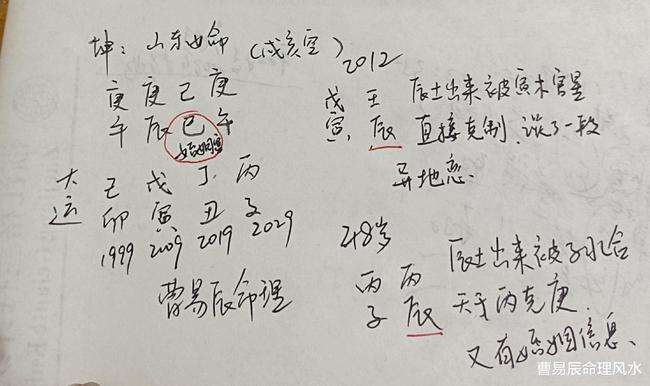 坤：山东女命（戌亥空）
庚庚己庚
午辰巳午
婚姻宫
大运
己戊丁丙
卯寅丑子
1999 2009 2019 2029
曹易辰命理
2012
戊壬
寅辰
辰土出来被寅木官星
直接克制，谈了一段
异地恋.
48岁
丙丙
子辰
辰土出来被子水合
天干丙克庚.
又有婚姻信息、
曹易辰命理风水